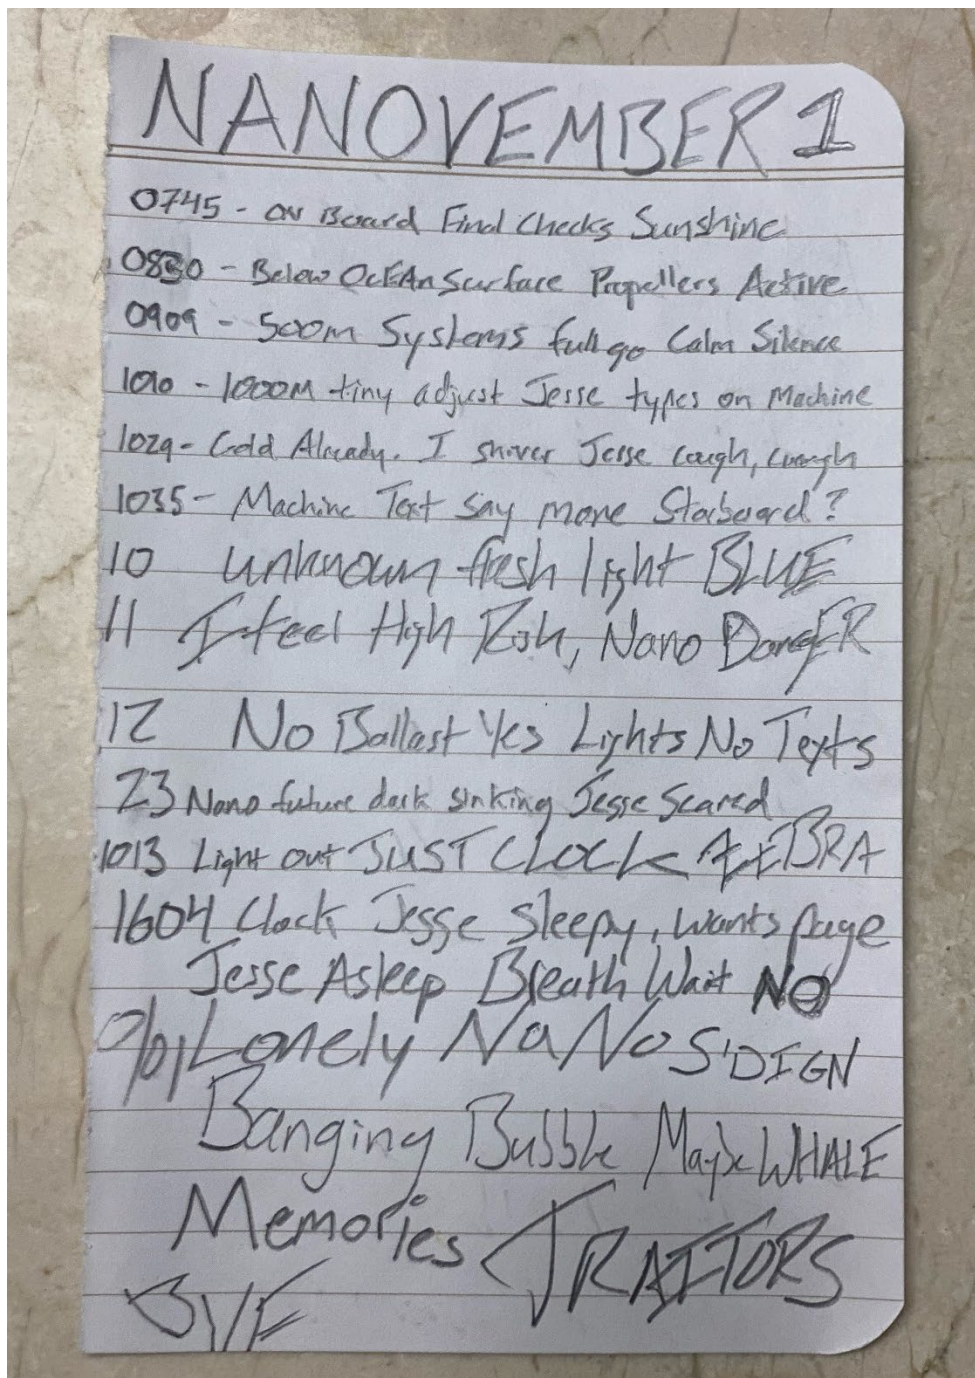 NANOVEMBER 1
0745 - ON Board Final Checks Sunshine
0830 - Below OcEAn Surface Propellers Active
0909 - 500m Systems full go Calm Silence
1010 - 1000M tiny adjust Jesse types on Machine
1029 - Cold Already. I shiver Jesse cough, cough
1035 - Machine Text say more Starboard?
10 unknown fresh light BLUE
11 I feel High Risk, Nano DangER
12 No Ballast Yes Lights No Texts
23 Nano future dark sinking Jesse Scared
1013 Light out JUST CLOCK
1604 Clock Jesse Sleepy, wants page
Jesse Asleep Breath Wait NO
Lonely NaNo S'DIGN
Banging Bubble Maybe WHALE
Memories TRAITORS
BYE